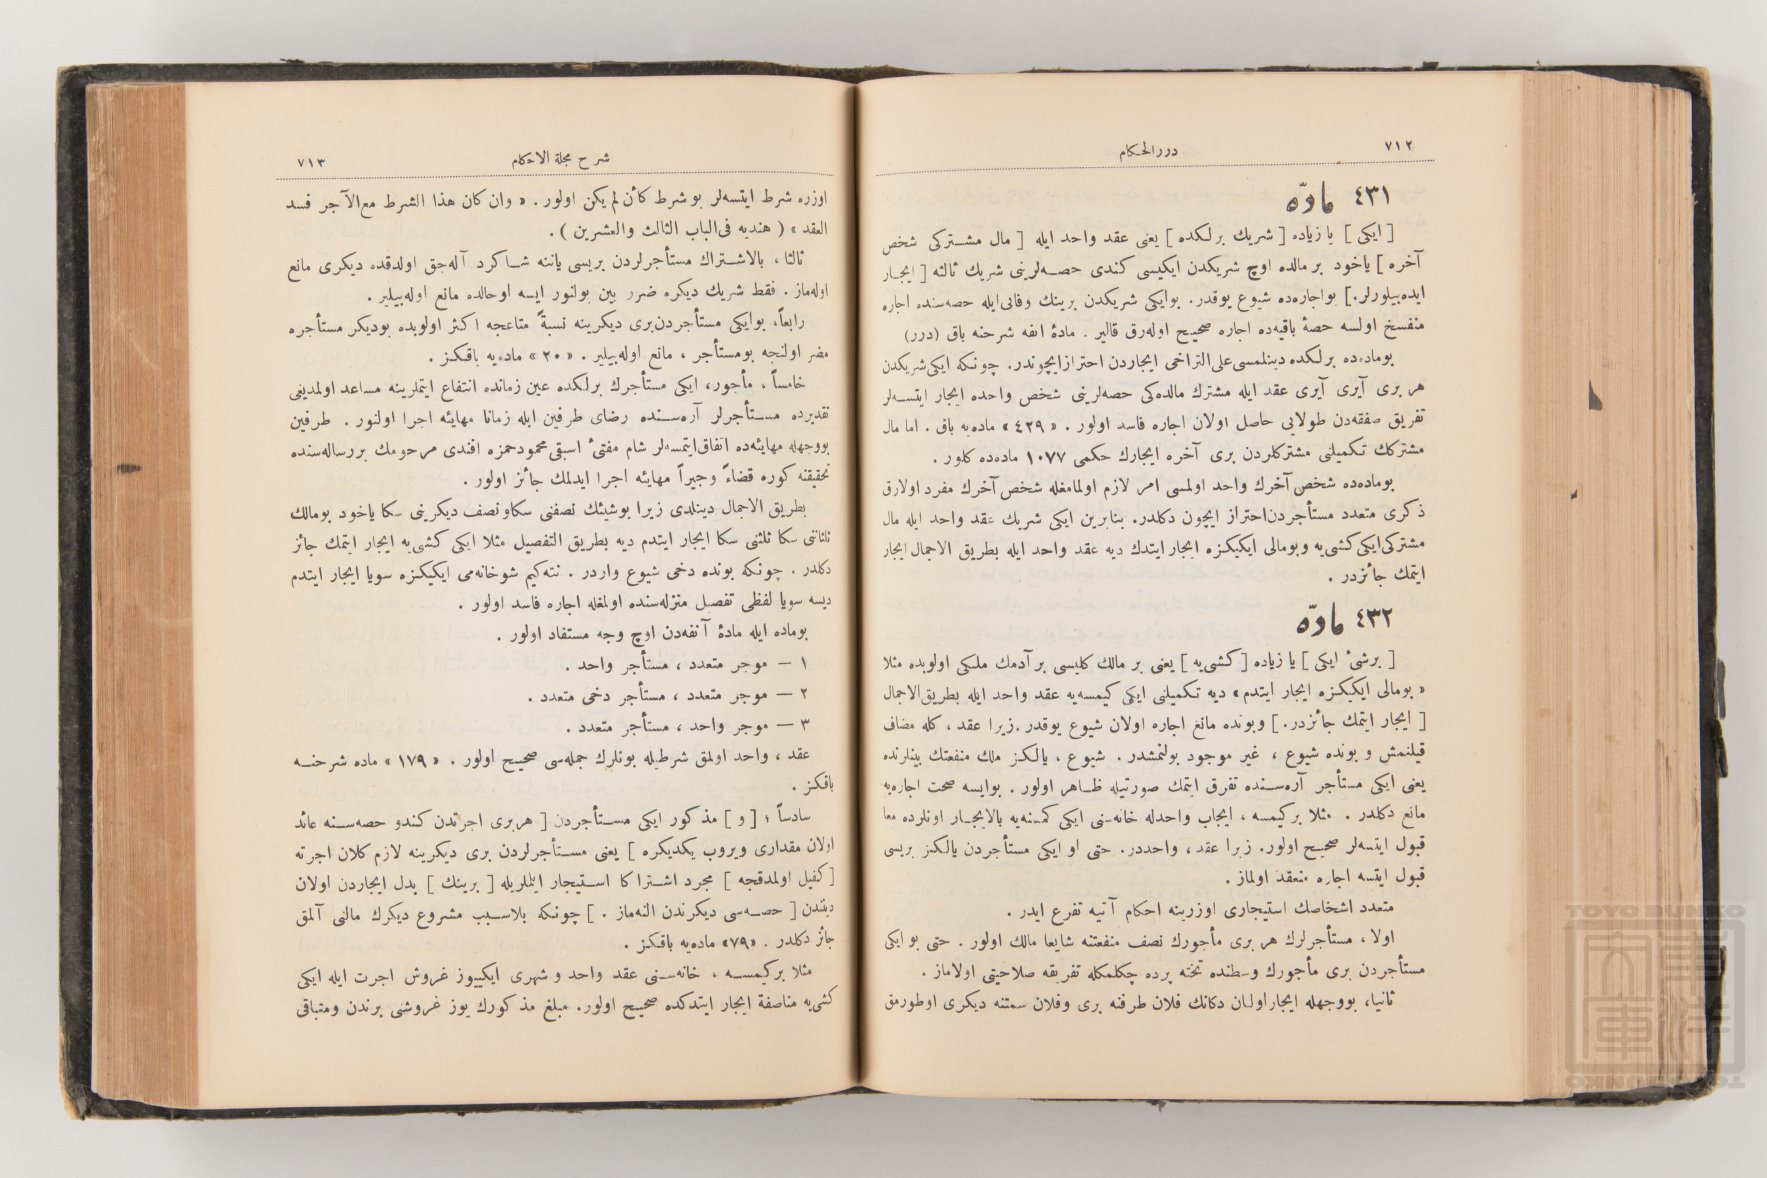 ٧١٢
دررالحكام
٤٣١ مادّه
[ ايكى ] يا زياده [ شريك برلكده ] يعنى عقد واحد ايله [ مال مشتركى شخص
آخره ] ياخود بر مالده اوچ شريكدن ايكيسى كندى حصه‌لرينى شريك ثالثه [ ايجار
ايده‌بيلورلر. ] بواجاره‌ده شيوع يوقدر. بوايكى شريكدن برينك وفاتى‌ايله حصه‌سنده اجاره
منفسخ اولسه حصهٔ باقيه‌ده اجاره صحيح اوله‌رق قالير . مادهٔ انفه شرحنه باق (درر)
بوماده‌ده برلكده دينلمسى على‌التراخى ايجاردن احترازايچوندر. چونكه ايكى‌شريكدن
هر برى آيرى آيرى عقد ايله مشترك مالده‌كى حصه‌لرينى شخص واحده ايجار ايتسه‌لر
تفريق صفقه‌دن طولايى حاصل اولان اجاره فاسد اولور . « ٤٢٩ » ماده‌يه باق . اما مال
مشتركك تكميلنى مشتركلردن برى آخره ايجارك حكمى ١٠٧٧ ماده‌ده كلور .
بوماده‌ده شخص آخرك واحد اولمسى امر لازم اولمامغله شخص آخرك مفرد اولارق
ذكرى متعدد مستأجردن‌احتراز ايچون دكلدر. بنابرين ايكى شريك عقد واحد ايله مال
مشتركى‌ايكى كشى‌يه وبومالى ايكيكزه ايجار ايتدك ديه عقد واحد ايله بطريق الاجمال ايجار
ايتمك جائزدر .
٤٣٢ مادّه
[ برشئ ايكى ] يا زياده [ كشى‌يه ] يعنى بر مالك كليسى بر آدمك ملكى اولوبده مثلا
« بومالى ايكيكزه ايجار ايتدم » ديه تكميلنى ايكى كيمسه‌يه عقد واحد ايله بطريق‌الاجمال
[ ايجار ايتمك جائزدر. ] وبونده مانع اجاره اولان شيوع يوقدر. زيرا عقد ، كله مضاف
قيلنمش و بونده شيوع ، غير موجود بولنمشدر . شيوع ، يالكز ملك منفعتك بينلرنده
يعنى ايكى مستأجر آره‌سنده تفرق ايتمك صورتيله ظاهر اولور . بوايسه صحت اجاره‌يه
مانع دكلدر . مثلا بركيمسه ، ايجاب واحدله خانه‌سنى ايكى كمسنه‌يه بالايجار اونلرده معا
قبول ايتسه‌لر صحيح اولور. زيرا عقد ، واحددر. حتى او ايكى مستأجردن يالكز بريسى
قبول ايتسه اجاره منعقد اولماز .
متعدد اشخاصك استيجارى اوزرينه احكام آتيه تفرع ايدر .
اولا ، مستأجرلرك هر برى مأجورك نصف منفعتنه شايعا مالك اولور . حتى بو ايكى
مستأجردن برى مأجورك وسطنده تخته پرده چكلمكله تفريقه صلاحيتى اولاماز .
ثانيا ، بووجهله ايجاراولنان دكانك فلان طرفنه برى وفلان سمتنه ديكرى اوطورمق
٧١٣
شرح مجلة الاحكام
اوزره شرط ايتسه‌لر بو شرط كأن لم يكن اولور . « وان كان هذا الشرط مع‌الآجر فسد
العقد » ( هنديه فى‌الباب الثالث والعشرين ) .
ثالثا ، بالاشتراك مستأجرلردن بريسى ياننه شاكرد آله‌جق اولدقده ديكرى مانع
اوله‌ماز . فقط شريك ديكره ضرر بين بولنور ايسه اوحالده مانع اوله‌بيلير .
رابعاً ، بوايكى مستأجردن‌برى ديكرينه نسبةً متاعجه اكثر اولوبده بوديكر مستأجره
مضر اولنجه بومستأجر ، مانع اوله‌بيلير . « ٢٠ » ماده‌يه باقكز .
خامساً ، مأجور، ايكى مستأجرك برلكده عين زمانده انتفاع ايتملرينه مساعد اولمديغى
تقديرده مستأجرلر آره‌سنده رضاى طرفين ايله زمانا مهايئه اجرا اولنور . طرفين
بووجهله مهايئه‌ده اتفاق‌ايتمسه‌لر شام مفتئ اسبقى محمودحمزه افندى مرحومك بررساله‌سنده
تحقيقنه كوره قضاءً وجبراً مهايئه اجرا ايدلمك جائز اولور .
بطريق الاجمال دينلدى زيرا بوشيئك نصفنى سكاونصف ديكرينى سكا ياخود بومالك
ثلثاننى سكا ثلثنى سكا ايجار ايتدم ديه بطريق التفصيل مثلا ايكى كشى‌يه ايجار ايتمك جائز
دكلدر . چونكه بونده دخى شيوع واردر . نته‌كيم شوخانه‌مى ايكيكزه سويا ايجار ايتدم
ديسه سويا لفظى تفصل منزله‌سنده اولمغله اجاره فاسد اولور .
بوماده ايله مادهٔ آنفه‌دن اوچ وجه مستفاد اولور .
١ — موجر متعدد ، مستأجر واحد .
٢ — موجر متعدد ، مستأجر دخى متعدد .
٣ — موجر واحد ، مستأجر متعدد .
عقد ، واحد اولمق شرطيله بونلرك جمله‌سى صحيح اولور . « ١٧٩ » ماده شرحنه
باقكز .
سادساً ؛ [ و ] مذكور ايكى مستأجردن [ هربرى اجرتدن كندو حصه‌سنه عائد
اولان مقدارى ويروب يكديكره ] يعنى مستأجرلردن برى ديكرينه لازم كلان اجرته
[ كفيل اولمدقجه ] مجرد اشتراكا استيجار ايتملريله [ برينك ] بدل ايجاردن اولان
ديننن [ حصه‌سى ديكرندن النه‌ماز . ] چونكه بلاسبب مشروع ديكرك مالنى آلمق
جائز دكلدر . «٧٩» ماده‌يه باقكز .
مثلا بركيمسه ، خانه‌سنى عقد واحد و شهرى ايكييوز غروش اجرت ايله ايكى
كشى‌يه مناصفة ايجار ايتدكده صحيح اولور. مبلغ مذكورك يوز غروشنى برندن ومتباقى
TOYO BUNKO